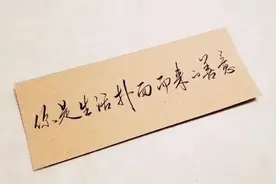 你是生活扑面而来的善意